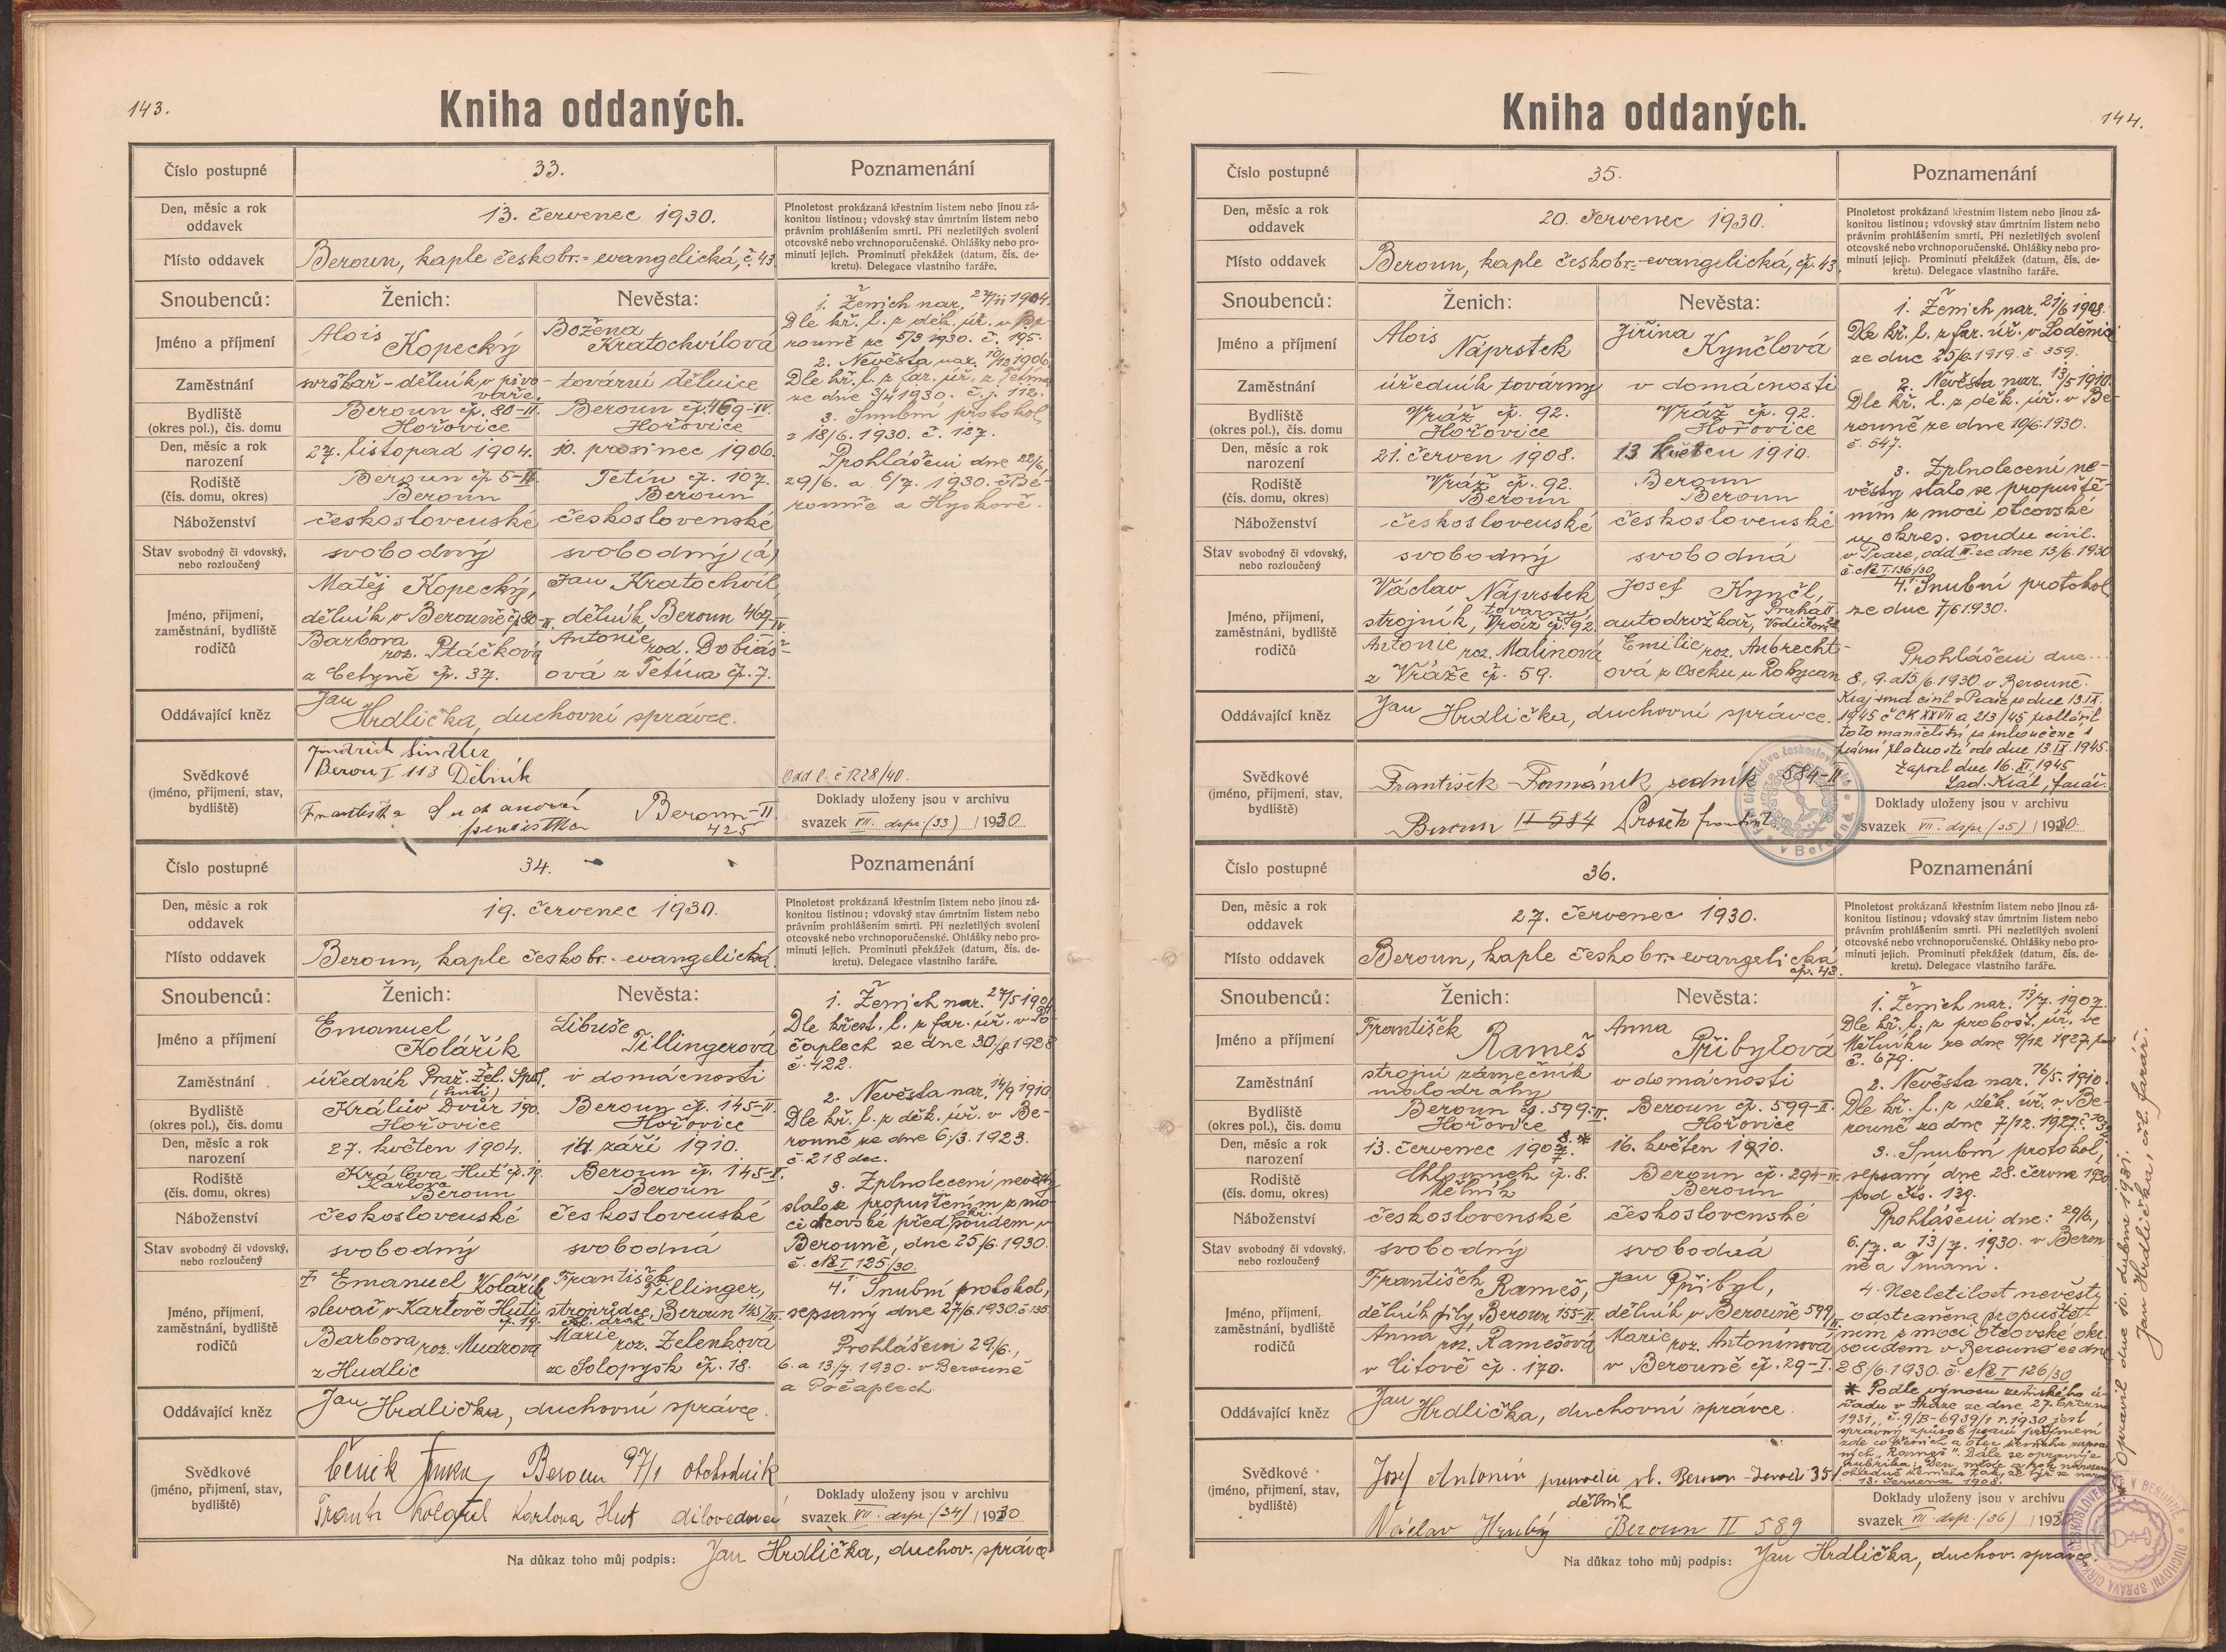 143.
Kniha oddaných.
Číslo postupné
33.
Poznamenání
Den, měsíc a rok
oddavek
13. červenec 1930.
Místo oddavek
Beroun, kaple českobr.-evangelická, č. 43
Plnoletost prokázaná křestním listem nebo jinou zá-
konitou listinou; vdovský stav úmrtním listem nebo
právním prohlášením smrti. Při nezletilých svolení
otcovské nebo vrchnoporučenské. Ohlášky nebo pro-
minutí jejich. Prominutí překážek (datum, čís. de-
kretu). Delegace vlastního faráře.
Snoubenců:
Ženich:
Nevěsta:
Jméno a příjmení
Alois
Kopecký
Božena
Kratochvílová
Zaměstnání
dělník v pivo-
vaře.
tovární dělnice
Bydliště
(okres pol.), čís. domu
Beroun čp. 80-II.
Hořovice
Beroun čp. 469-IV.
Hořovice
Den, měsíc a rok
narození
27. listopad 1904.
10. prosinec 1906.
Rodiště
(čís. domu, okres)
Beroun čp 5-II.
Beroun
Tetín čp. 107.
Beroun
Náboženství
československé
československé
Stav svobodný či vdovský,
nebo rozloučený
svobodný
svobodný (á)
Jméno, příjmení,
zaměstnání, bydliště
rodičů
Matěj Kopecký,
dělník v Berouně čp 80-II.
Barbora
roz. Ptáčková
z Cetyně čp. 37.
Jan Kratochvíl,
dělník, Beroun 469-IV.
Antonie
rod. Dobiáš-
ová z Tetína čp. 7.
Oddávající kněz
Jan
Hrdlička, duchovní správce.
Svědkové
(jméno, příjmení, stav,
bydliště)
Jindřich Šindler
Beroun I 113 Dělník
Beroun-II
425
1. Ženich nar. 27/11 1904.
Dle kř. l. z děk. úř. v Be-
rouně ze 5/3 1930. č. 195.
2. Nevěsta nar. 10/12 1906
Dle kř. l. z far. úř. z Tetína
ze dne 3/4 1930. č.j. 112.
3. Snubní protokol
z 18/6. 1930. č. 127.
Prohlášeni dne 22/6,
29/6. a 6/7. 1930. v Be-
rouně a Hyskově.
Odd. l. č 1228/40.
Doklady uloženy jsou v archivu
svazek VII. dspr. (33) / 1930
Číslo postupné
34.
Poznamenání
Den, měsíc a rok
oddavek
19. červenec 1930.
Místo oddavek
Beroun, kaple českobr.-evangelická.
Plnoletost prokázaná křestním listem nebo jinou zá-
konitou listinou; vdovský stav úmrtním listem nebo
právním prohlášením smrti. Při nezletilých svolení
otcovské nebo vrchnoporučenské. Ohlášky nebo pro-
minutí jejich. Prominutí překážek (datum, čís. de-
kretu). Delegace vlastního faráře.
Snoubenců:
Ženich:
Nevěsta:
Jméno a příjmení
Emanuel
Kolářík
Libuše
Tillingerová
Zaměstnání
úředník Praž. žel. Spol.
(huti)
v domácnosti
Bydliště
(okres pol.), čís. domu
Králův Dvůr 190.
Hořovice
Beroun čp. 145-II.
Hořovice
Den, měsíc a rok
narození
27. květen 1904.
14. září 1910.
Rodiště
(čís. domu, okres)
Králova Huť čp. 19.
Karlova
Beroun
Beroun čp. 145-II.
Beroun
Náboženství
československé
československé
Stav svobodný či vdovský,
nebo rozloučený
svobodný
svobodná
Jméno, příjmení,
zaměstnání, bydliště
rodičů
Emanuel Kolářík
slevač v Karlově Huti
čp. 19.
Barbora roz. Mudrova
z Hudlic
František
Tillinger,
strojvůdce, Beroun 145/II.
Marie
roz. Zelenková
ze Solopysk čp. 18.
Oddávající kněz
Jan
Hrdlička, duchovní správce.
Svědkové
(jméno, příjmení, stav,
bydliště)
Čeněk Beroun 97/I obchodník
Karlova Huť dílovedoucí
1. Ženich nar. 27/5 1904
Dle křest. l. z far. úř. v Po-
čaplech ze dne 30./8 1928
č. 422.
2. Nevěsta nar. 14/9 1910
Dle kř. l. z děk. úř. v Be-
rouně ze dne 6./3. 1923.
č. 218 dec.
3. Zplnolecení nevěsty
stalo se propuštěním z mo-
ci otcovské před soudem v
Berouně, dne 25/6. 1930.
č. Nc I 125/30.
4. Snubní protokol,
sepsaný dne 27/6. 1930. č. 135.
Prohlášeni 29/6.,
6. a 13/7. 1930. v Berouně
a Počaplech.
Doklady uloženy jsou v archivu
svazek VII. dspr. (34) / 1930
Na důkaz toho můj podpis: Jan Hrdlička, duchov. správce
144.
Kniha oddaných.
Číslo postupné
35.
Poznamenání
Den, měsíc a rok
oddavek
20. červenec 1930.
Místo oddavek
Beroun, kaple českobr.-evangelická, čp. 43.
Plnoletost prokázaná křestním listem nebo jinou zá-
konitou listinou; vdovský stav úmrtním listem nebo
právním prohlášením smrti. Při nezletilých svolení
otcovské nebo vrchnoporučenské. Ohlášky nebo pro-
minutí jejich. Prominutí překážek (datum, čís. de-
kretu). Delegace vlastního faráře.
Snoubenců:
Ženich:
Nevěsta:
Jméno a příjmení
Alois
Náprstek
Jiřina
Kynčlová
Zaměstnání
úředník továrny
v domácnosti
Bydliště
(okres pol.), čís. domu
Vráž čp. 92.
Hořovice
Vráž čp. 92.
Hořovice
Den, měsíc a rok
narození
21. červen 1908.
13 květen 1910.
Rodiště
(čís. domu, okres)
Vráž čp. 92.
Beroun
Beroun
Beroun
Náboženství
československé
československé
Stav svobodný či vdovský,
nebo rozloučený
svobodný
svobodná
Jméno, příjmení,
zaměstnání, bydliště
rodičů
Václav Náprstek
strojník továrny, Vráž čp. 92.
Antonie roz. Malinová
z Vráže čp. 59.
Josef Kynčl,
autodrožkář, Praha II
Emilie roz. Aubrecht-
ová z Oseku u Rokycan
Oddávající kněz
Jan
Hrdlička, duchovní správce.
Svědkové
(jméno, příjmení, stav,
bydliště)
František Formánek zedník 584-II
Beroun II-584 Prošek
1. Ženich nar. 21/6 1908.
Dle kř. l. z far. úř. v Loděnici
ze dne 25/6 1919. č. 359.
2. Nevěsta nar. 13/5 1910.
Dle kř. l. z děk. úř. v Be-
rouně ze dne 10/6 1930.
č. 547.
3. Zplnolecení ne-
věsty stalo se propuště-
ním z moci otcovské
u okres. soudu civil.
v Praze, odd. II. ze dne 13/6. 1930
č. Nc I. 136/30
4. Snubní protokol
ze dne 7/6 1930.
Prohlášeni dne...
8., 9. a 15./6. 1930. v Berouně.
Kraj. soud civil v Praze ze dne 13. IX.
1945 č CK XXVII a 213/45 rozloučil
toto manželství
právní platností ode dne 13. IX 1945.
Zapsal dne 16. XI. 1945
Lad. Král, farář.
Doklady uloženy jsou v archivu
svazek VII. dspr. (35) / 1930
Číslo postupné
36.
Poznamenání
Den, měsíc a rok
oddavek
27. červenec 1930.
Místo oddavek
Beroun, kaple českobr.-evangelická
čp. 43.
Plnoletost prokázaná křestním listem nebo jinou zá-
konitou listinou; vdovský stav úmrtním listem nebo
právním prohlášením smrti. Při nezletilých svolení
otcovské nebo vrchnoporučenské. Ohlášky nebo pro-
minutí jejich. Prominutí překážek (datum, čís. de-
kretu). Delegace vlastního faráře.
Snoubenců:
Ženich:
Nevěsta:
Jméno a příjmení
František
Rameš
Anna
Přibylová
Zaměstnání
strojní zámečník
v domácnosti
Bydliště
(okres pol.), čís. domu
Beroun čp. 599-II.
Hořovice
Beroun čp. 599-II.
Hořovice
Den, měsíc a rok
narození
13. červenec 1907. 8. *
16. květen 1910.
Rodiště
(čís. domu, okres)
Chlumek čp. 8.
Mělník
Beroun čp. 294-II.
Beroun
Náboženství
československé
československé
Stav svobodný či vdovský,
nebo rozloučený
svobodný
svobodná
Jméno, příjmení,
zaměstnání, bydliště
rodičů
František Rameš,
dělník pily, Beroun 155-II.
Anna
roz. Ramešová
v Litově čp. 170.
Jan Přibyl,
dělník v Berouně 599/II
Marie roz. Antonínová
v Berouně čp. 29-I.
Oddávající kněz
Jan
Hrdlička, duchovní správce
Svědkové
(jméno, příjmení, stav,
bydliště)
Josef Antonín
dělník
Václav Hrubý Beroun II 589
1. Ženich nar. 13/7. 1907.
Dle kř. l. z probošt. úř. ve
Mělníku ze dne 9/12 1927 pod
č. 679.
2. Nevěsta nar. 16/5. 1910.
Dle kř. l. z děk. úř. v Be-
rouně ze dne 7/12. 1927.
3. Snubní protokol,
sepsaný dne 28. června 1930
pod čís. 139.
Prohlášeni dne: 29/6.,
6./7. a 13/7. 1930. v Berou-
ně a Tmani.
4. Nezletilost nevěsty
odstraněna propuště-
ním z moci otcovské okr.
soudem v Berouně ze dne
28/6. 1930. č. Nc I 126/30
* Podle výnosu zemského ú-
řadu v Praze ze dne 27. března
1931, č. 9/B-6939/1 r. 1930 jest
správný způsob psaní příjmení
zde co ženich a otec ženicha zapsa-
ných "Rameš". Dále se opravuje
rubrika: Den, měsíc a rok narození
ohledně ženicha tak, že týž se narodil
13. července 1908.
Doklady uloženy jsou v archivu
svazek VII. dspr. (36) / 193
* Opravil dne 10. dubna 1931.
Jan Hrdlička, čsl. farář.
Na důkaz toho můj podpis: Jan Hrdlička, duchov. správce.